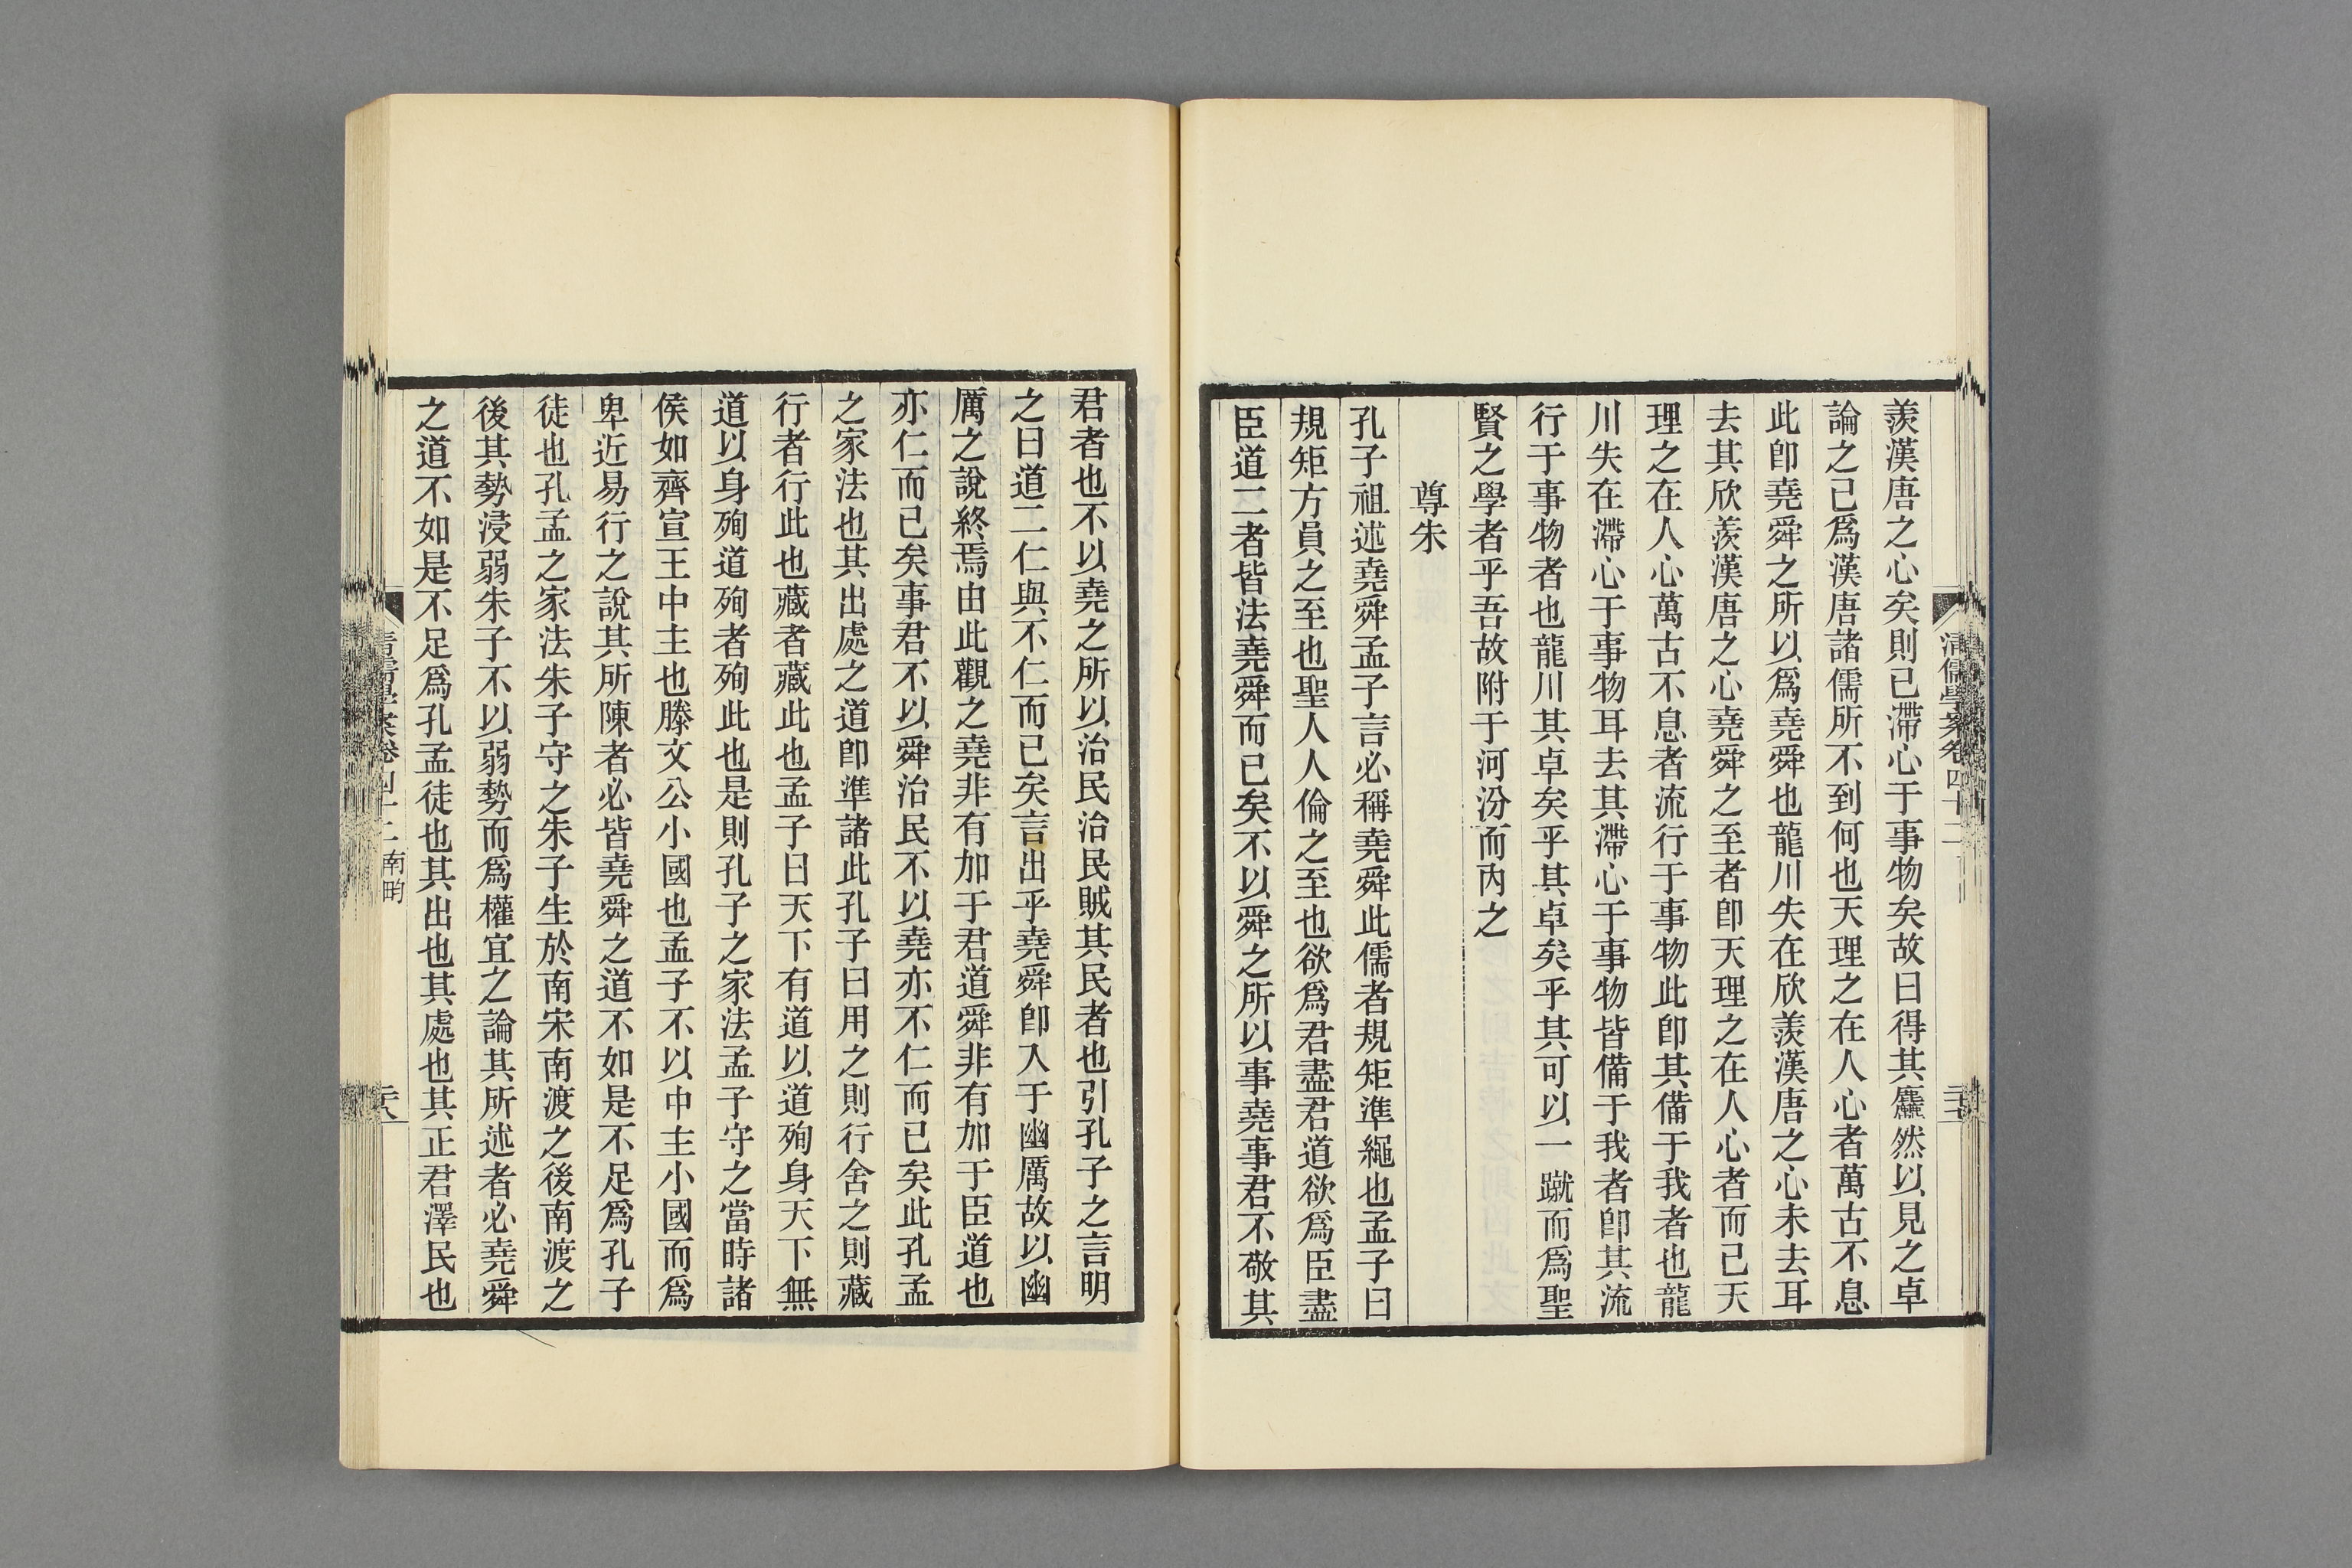 羨漢唐之心矣則已滯心于事物矣故曰得其麤然以見之卓
論之已爲漢唐諸儒所不到何也天理之在人心者萬古不息
此卽堯舜之所以爲堯舜也龍川失在欣羨漢唐之心未去耳
去其欣羨漢唐之心堯舜之至者卽天理之在人心者而已天
理之在人心萬古不息者流行于事物此卽其備于我者也龍
川失在滯心于事物耳去其滯心于事物皆備于我者卽其流
行于事物者也龍川其卓矣乎其卓矣乎其可以一蹴而爲聖
賢之學者乎吾故附于河汾而內之
尊朱
孔子祖述堯舜孟子言必稱堯舜此儒者規矩準繩也孟子曰
規矩方員之至也聖人人倫之至也欲爲君盡君道欲爲臣盡
臣道二者皆法堯舜而已矣不以舜之所以事堯事君不敬其
清儒學案卷四十二
君者也不以堯之所以治民治民賊其民者也引孔子之言明
之曰道二仁與不仁而已矣言出乎堯舜卽入于幽厲故以幽
厲之說終焉由此觀之堯非有加于君道舜非有加于臣道也
亦仁而已矣事君不以舜治民不以堯亦不仁而已矣此孔孟
之家法也其出處之道卽準諸此孔子曰用之則行舍之則藏
行者行此也藏者藏此也孟子曰天下有道以道殉身天下無
道以身殉道殉者殉此也是則孔子之家法孟子守之當時諸
侯如齊宣王中主也滕文公小國也孟子不以中主小國而爲
卑近易行之說其所陳者必皆堯舜之道不如是不足爲孔子
徒也孔孟之家法朱子守之朱子生於南宋南渡之後南渡之
後其勢浸弱朱子不以弱勢而爲權宜之論其所述者必堯舜
之道不如是不足爲孔孟徒也其出也其處也其正君澤民也
清儒學案卷四十二 南畇